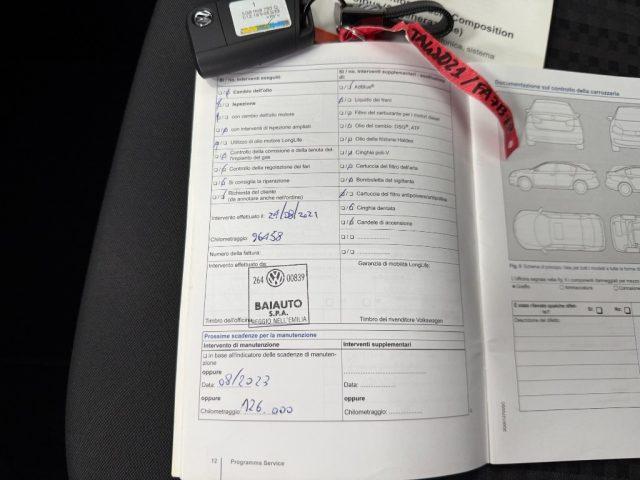 Composition
SI / no. Interventi eseguiti
Cambio dell'olio
Ispezione
con cambio dell'olio motore
con interventi di ispezione ampliati
Utilizzo di olio motore LongLife
Controllo della corrosione e della tenuta dell'impianto del gas
Controllo della regolazione dei fari
Si consiglia la riparazione
Richiesta del cliente
(da annotare anche nell'ordine)
Intervento effettuato il: 24/08/2021
Chilometraggio: 96458
Numero della fattura:
Intervento effettuato da:
264 00839
BAIAUTO
S.P.A.
REGGIO NELL'EMILIA
Timbro dell'officina
SI / no. Interventi supplementari
AdBlue®
Liquido dei freni
Filtro del carburante per i motori diesel
Olio del cambio: DSG®, ATF
Olio della frizione Haldex
Cinghia poli-V
Cartuccia del filtro dell'aria
Bomboletta del sigillante
Cartuccia del filtro antipolvere/antipolline
Cinghia dentata
Candele di accensione
Garanzia di mobilità LongLife:
Timbro del rivenditore Volkswagen
Prossime scadenze per la manutenzione
Intervento di manutenzione
in base all'indicatore delle scadenze di manutenzione
oppure
Data: 08/2023
oppure
Chilometraggio: 126.000
Interventi supplementari
oppure
Data:
oppure
Chilometraggio:
12 Programma Service
Documentazione sul controllo della carrozzeria
Graffio
Ammaccatura
È stato rilevato qualche difetto?
Sì
No
Descrizione del difetto: